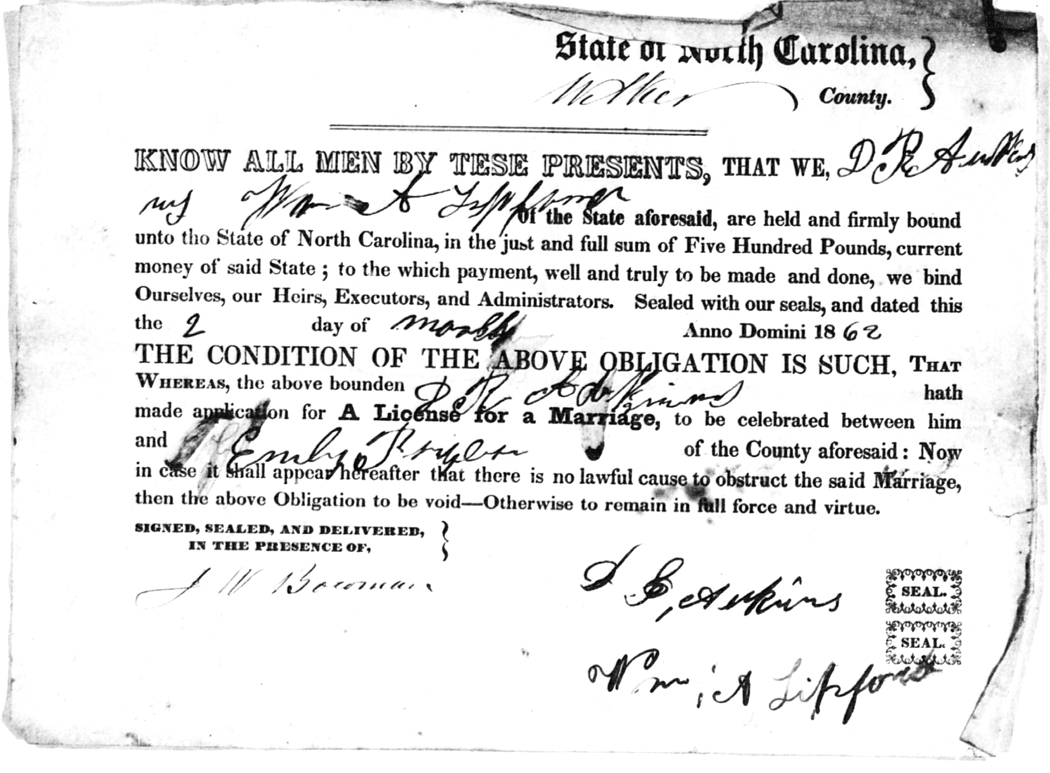 State of North Carolina,
Wilkes County.
KNOW ALL MEN BY TESE PRESENTS, THAT WE, D R
Wm A Lippford
of the State aforesaid, are held and firmly bound
unto tho State of North Carolina, in the just and full sum of Five Hundred Pounds, current
money of said State; to the which payment, well and truly to be made and done, we bind
Ourselves, our Heirs, Executors, and Administrators. Sealed with our seals, and dated this
the 2 day of Anno Domini 1862
THE CONDITION OF THE ABOVE OBLIGATION IS SUCH, THAT
WHEREAS, the above bounden D R Adkins hath
made application for A License for a Marriage, to be celebrated between him
and Emily of the County aforesaid: Now
in case it shall appear hereafter that there is no lawful cause to obstruct the said Marriage,
then the above Obligation to be void—Otherwise to remain in full force and virtue.
SIGNED, SEALED, AND DELIVERED,
IN THE PRESENCE OF,
J W Bowman
Adkins SEAL.
SEAL.
Wm A Lippford